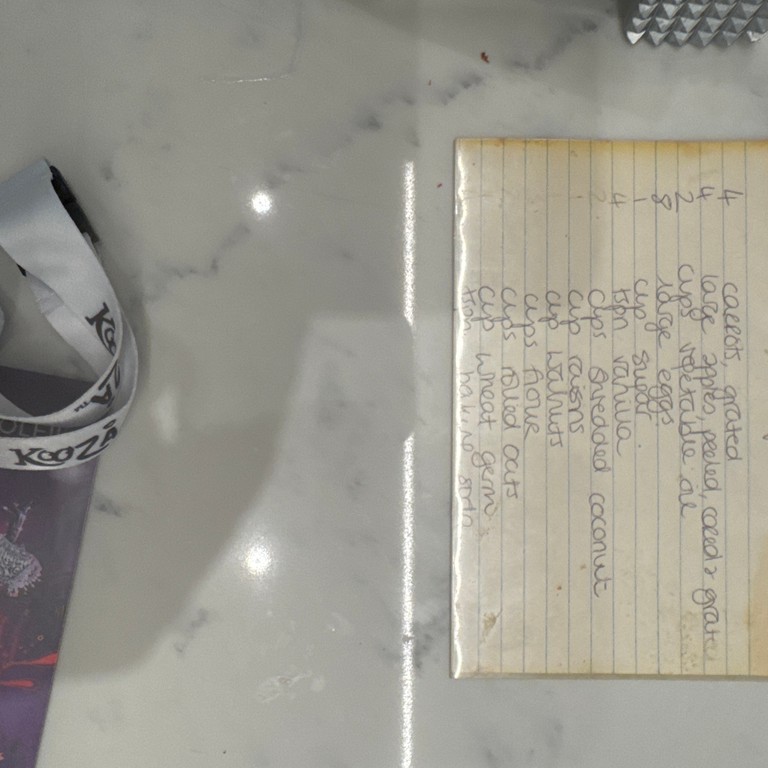 4 carrots, grated
4 large apples, peeled, cored & grated
2 cups vegetable oil
8 large eggs
1 cup sugar
4 tspn vanilla
2 cups shredded coconut
cup raisins
cup walnuts
cups flour
cups rolled oats
cup wheat germ
soda
KOOZA
KOOZA